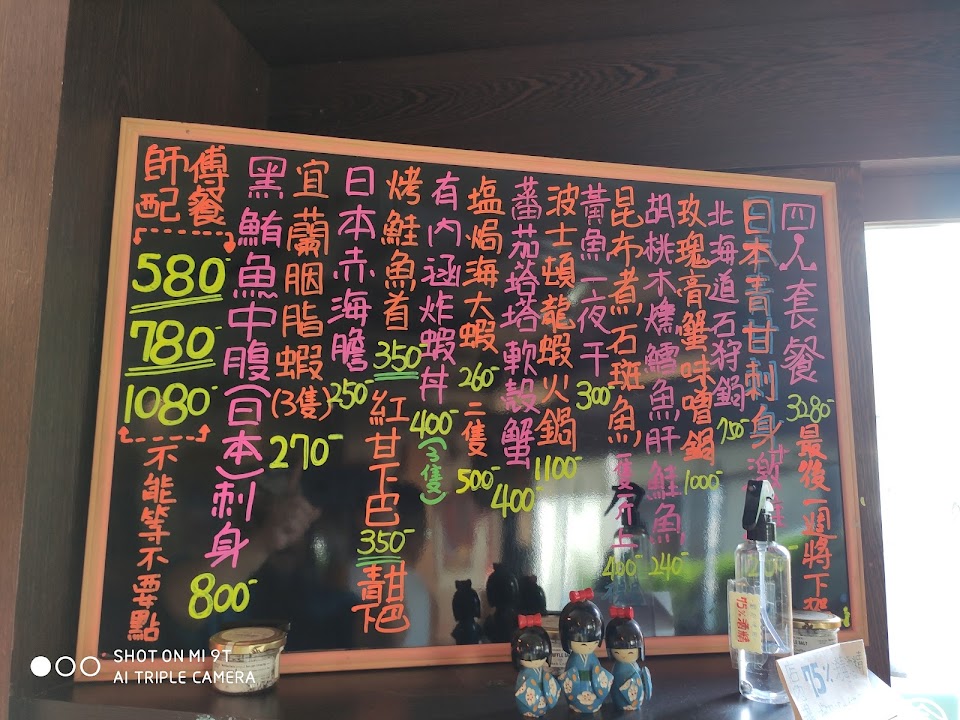 四人套餐
3280-
最後一週將下架
日本青甘刺身
北海道石狩鍋
750-
玫瑰膏蟹味噌鍋
1000-
胡桃木燻鱈魚肝鮭魚
240-
昆布煮石斑魚
400-
黃魚一夜干
300-
波士頓龍蝦火鍋
1100-
蕃茄塔塔軟殼蟹
400-
塩焗海大蝦
260-
二隻
500-
有內涵炸蝦丼
400-
(3隻)
烤鮭魚肴
350-
紅甘下巴
350-
青甘下巴
日本赤海膽
250-
宜蘭胭脂蝦
(3隻)
270-
黑鮪魚中腹(日本)刺身
800-
師傅
配餐
580-
780-
1080-
不能等不要點
75%酒精
75%
SHOT ON MI 9T
AI TRIPLE CAMERA